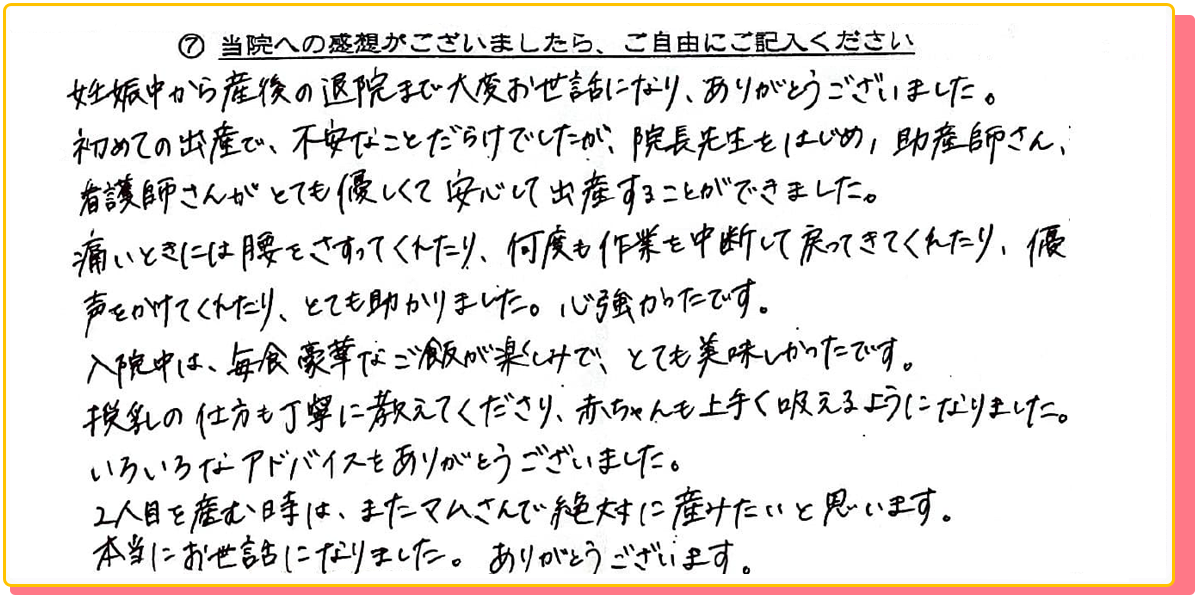 ⑦ 当院への感想がございましたら、ご自由にご記入ください
妊娠中から産後の退院まで大変お世話になり、ありがとうございました。
初めての出産で、不安なことだらけでしたが、院長先生をはじめ、助産師さん、
看護師さんがとても優しくて安心して出産することができました。
痛いときには腰をさすってくれたり、何度も作業を中断して戻ってきてくれたり、優
声をかけてくれたり、とても助かりました。心強かったです。
入院中は、毎食豪華なご飯が楽しみで、とても美味しかったです。
授乳の仕方も丁寧に教えてくださり、赤ちゃんも上手く吸えるようになりました。
いろいろなアドバイスをありがとうございました。
2人目を産む時は、またマムさんで絶対に産みたいと思います。
本当にお世話になりました。ありがとうございます。